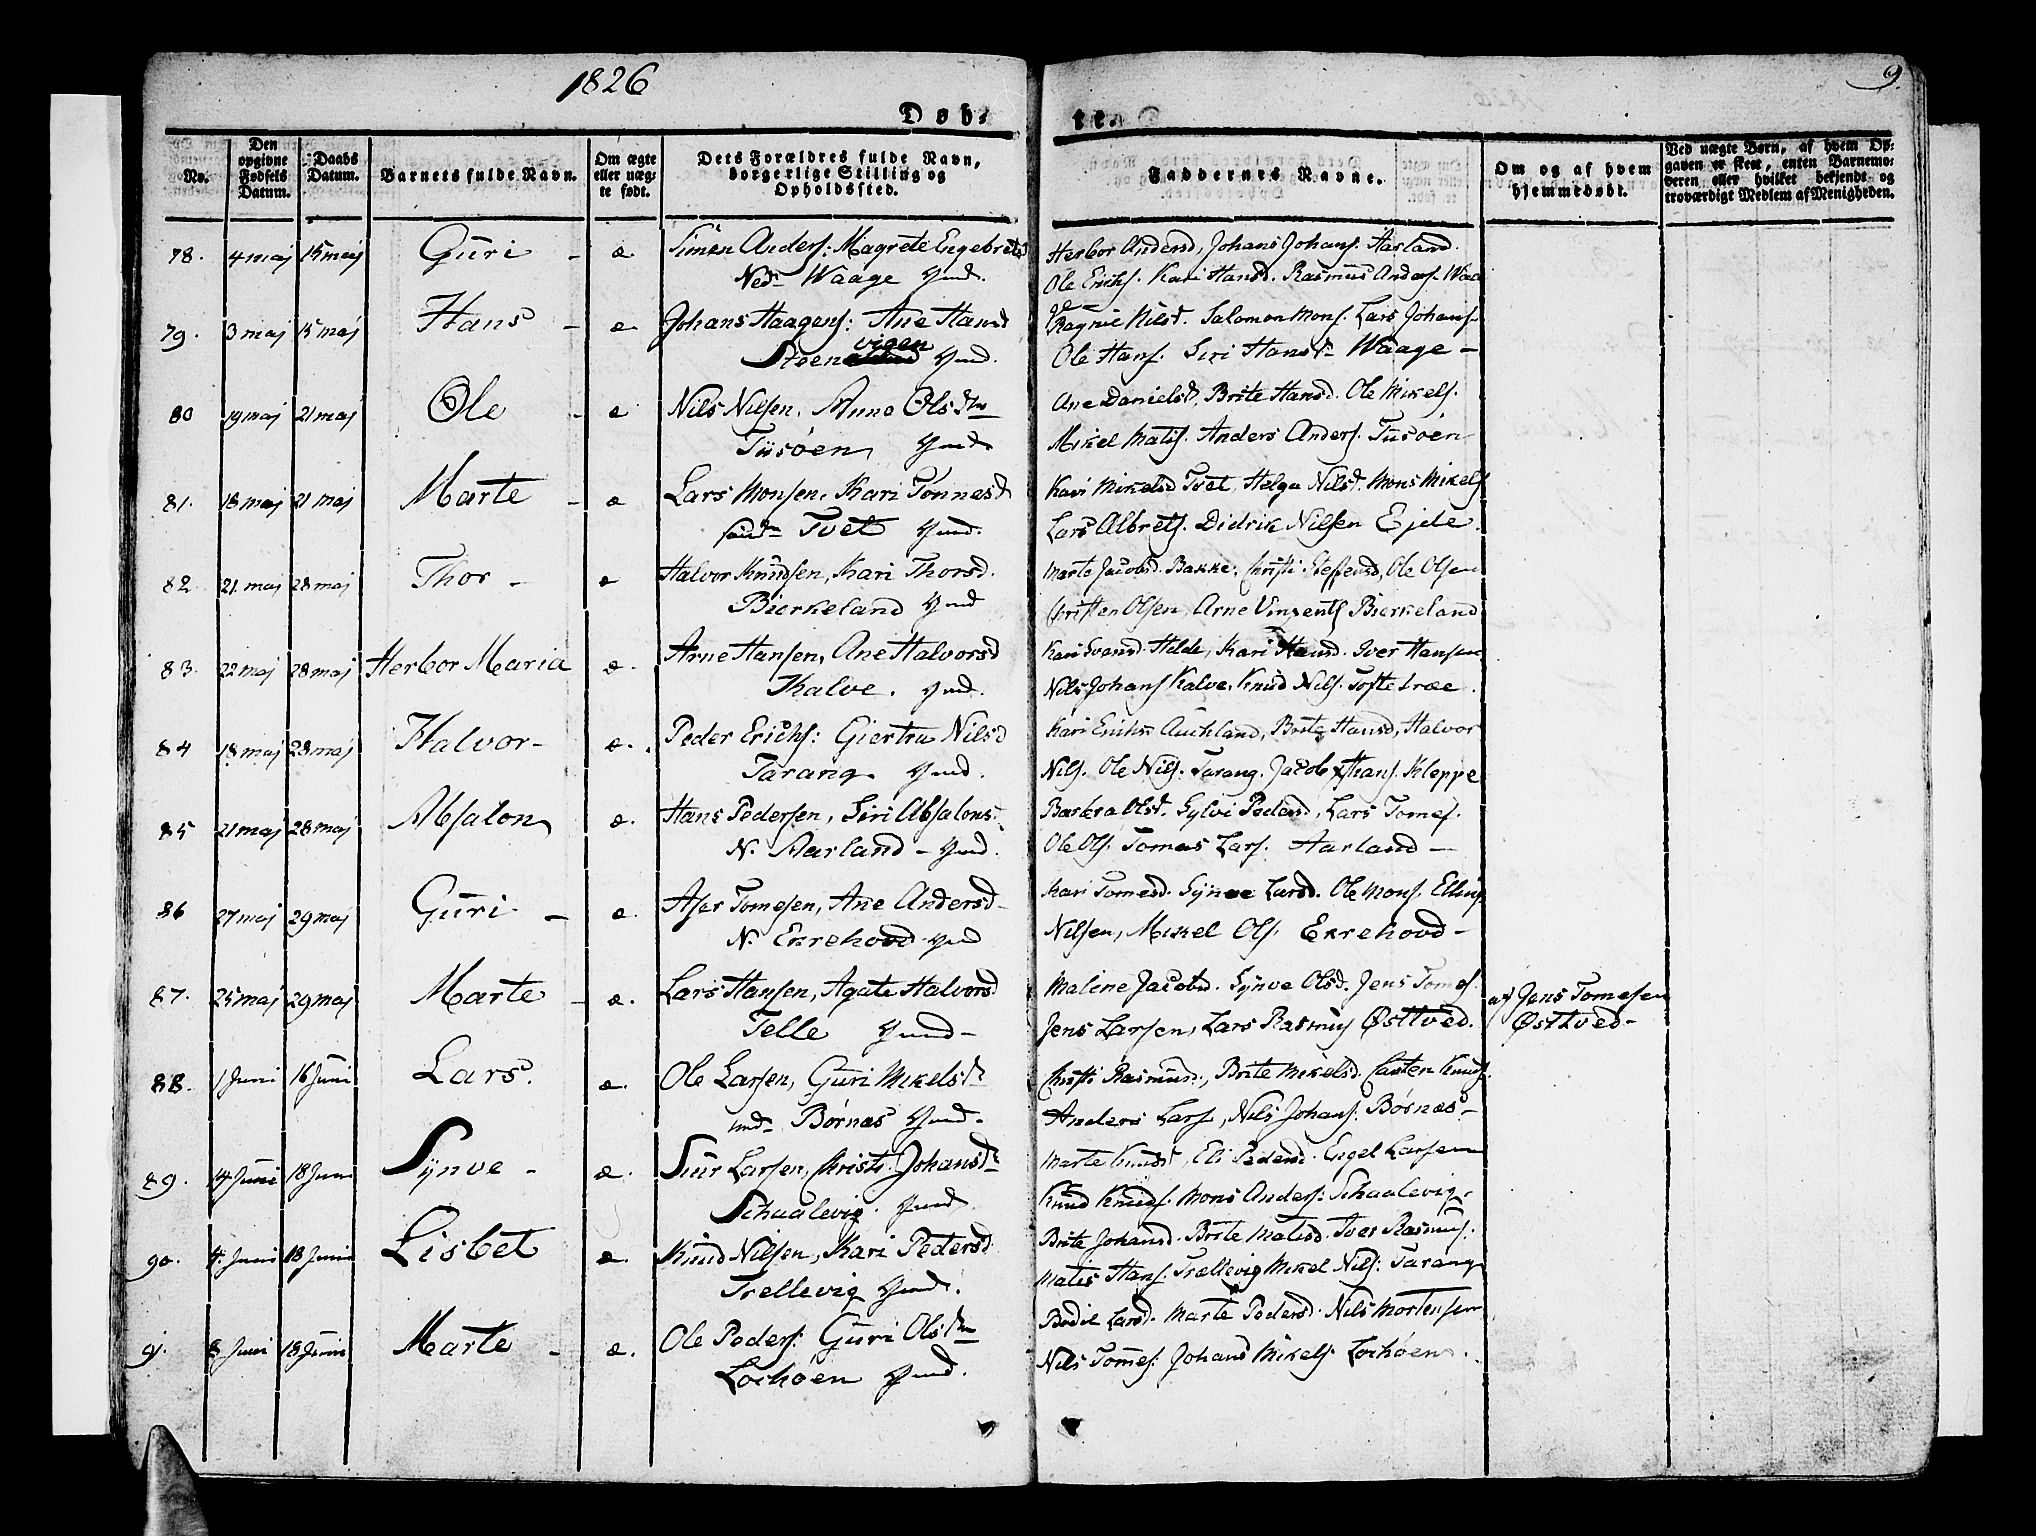 1826
9.
Døb-
te.
No.
Den opgivne Fødsels Datum.
Daabs Datum.
Barnets fulde Navn.
Om ægte eller uægte født.
Dets Forældres fulde Navn, borgerlige Stilling og Opholdssted.
Faddernes Navne.
Om og af hvem hjemmedøbt.
Ved uægte Børn, af hvem Opgaven er skeet, enten Barnemoderen eller hvilket bekjendt og troværdigt Medlem af Menigheden.
78. 4 maj 15 maj Guri - æ Simon Anders: Magrete Engebretsd Herbor Andersd, Johans Johans. Harland.
Ned Waage Gmd. Ole Erichs. Kari Hansd. Rasmus Anders. Waage
79. 3 maj 15 maj Hans - æ Johans Haagens: Ane Hansd Ragnie Nilsd. Salomon Mons. Lars Johans.
Steenvigen Gmd. Ole Hans. Siri Hansdr Waage -
80 19 maj 21 maj Ole - æ Nils Nilsen, Anne Olsdtr Ane Danielsd, Brite Hansd. Ole Mikels.
Tüsøen Gmd. Mikel Matis. Anders Anders. Tüsøen
81. 18 maj 21 maj Marte - æ Lars Monsen, Kari Tønnesd Kari Mikelsd Tvet, Helga Nilsd. Mons Mikels
Tvet Gmd. Lars Albrets. Didrik Nilsen Ejde.
82. 21. maj 28 maj Thor - æ Halvor Knudsen, Kari Thorsd. Marte Jacobsd. Bakke, Christi Steffensd, Ole Olsen
Bierkeland Gmd Christen Olsen, Arne Vinzents Bierkeland
83. 22 maj 28 maj Herbor Maria æ. Arne Hansen, Ane Halvorsd Kari Svansd Helde, Kari Hansd. Iver Hansen
Kalve. Gmd. Nils Johans Kalve, Knud Nils. Toftetræe.
84 18 maj 28 maj Halvor - æ. Peder Erichs: Giertru Nilsd Kari Eriksd Auchland, Brite Hansd, Halvor
Tarang. Gmd. Nils. Ole Nils. Tarang. Jacob Hans. Kleppe
85 21 maj 28 maj Absalon æ. Hans Pedersen, Siri Absalons. Barbra Olsd. Sylvi Pedersd, Lars Tomes.
N. Aarland - Gmd. Ole Ols. Tomas Lars. Aarland -
86 27 maj 29 maj Guri - æ. Aser Tomesen, Ane Andersd Kari Tomesd. Synve Larsd. Ole Mons. Elling
N. Ekrehovd Gmd Nilsen, Mikel Ols. Ekrehovd -
87. 25 maj 29 maj Marte - æ. Lars Hansen, Agate Halvorsd Malene Jacobsd. Synve Olsd. Jens Tomes. af Jens Tomesen
Telle Gmd - Jens Larsen, Lars Rasmus Østtved. Østtved -
88. 1 Juni 16 Juni Lars. æ. Ole Larsen, Guri Mikelsdr Christi Rasmusd., Brite Mikelsd. Carsten Knuds.
Børnæs Gmd. Anders Lars, Nils Johans. Børnæs -
89. 14 Juni 18 Juni Synve - æ. Siur Larsen, Christi Johansdr Marte Knudsd, Eli Pedersd. Engel Larsen
Schaalevig. Gmd Knud Knuds. Mons Anders: Schaalevig.
90. 4. Juni 18 Juni Lisbet æ. Knud Nilsen, Kari Pedersd Brite Johansd. Brite Matisd. Iver Rasmus.
Trellevig Gmd. Matis Hans. Trællevig Mikel Nils: Tarang
91. 8 Juni 18 Juni Marte - æ. Ole Peders: Guri Olsdtr Bodil Larsd. Marte Pedersd. Nils Mortensen
Lochøen Gmd. Nils Tomes. Johans Mikels Lochøen.